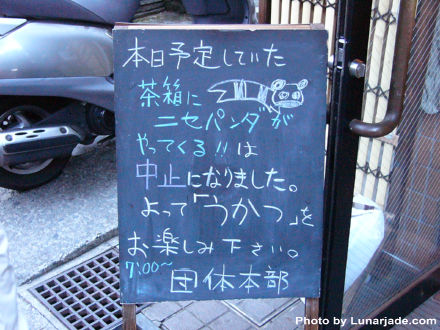 本日予定していた
茶箱に
ニセパンダが
やってくる!!は
中止になりました。
よって「うかつ」を
お楽しみ下さい。
7:00〜
団体本部
Photo by Lunarjade.com